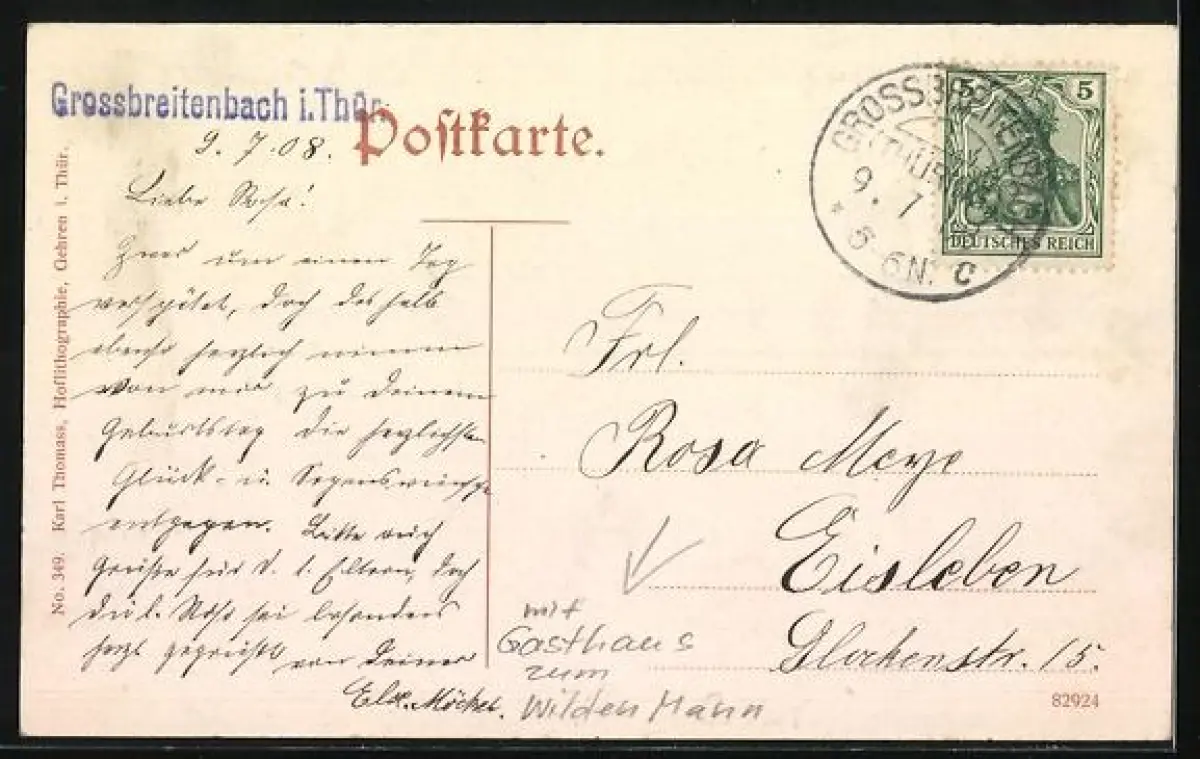 Grossbreitenbach i. Thür.
Postkarte.
9. 7. 08.
Liebe Rosa!
Zwar um einen Tag
verspätet, doch deshalb
ebenso herzlich nimm
von mir zu Deinem
Geburtstag die herzlichsten
Glück- u. Segenswünsche
entgegen. Bitte auch
Grüße für d. l. Eltern, doch
Du l. Rosa sei besonders
herzl. gegrüßt von Deiner
No. 349. Karl Thomass, Hoflithographie, Gehren i. Thür.
GROSSBREITENBACH
9. 7
5 6N. C
5 5
DEUTSCHES REICH
Frl.
Rosa Meye
Eisleben
Glockenstr. 15.
mit
Gasthaus
zum
Wilden Mann
82924